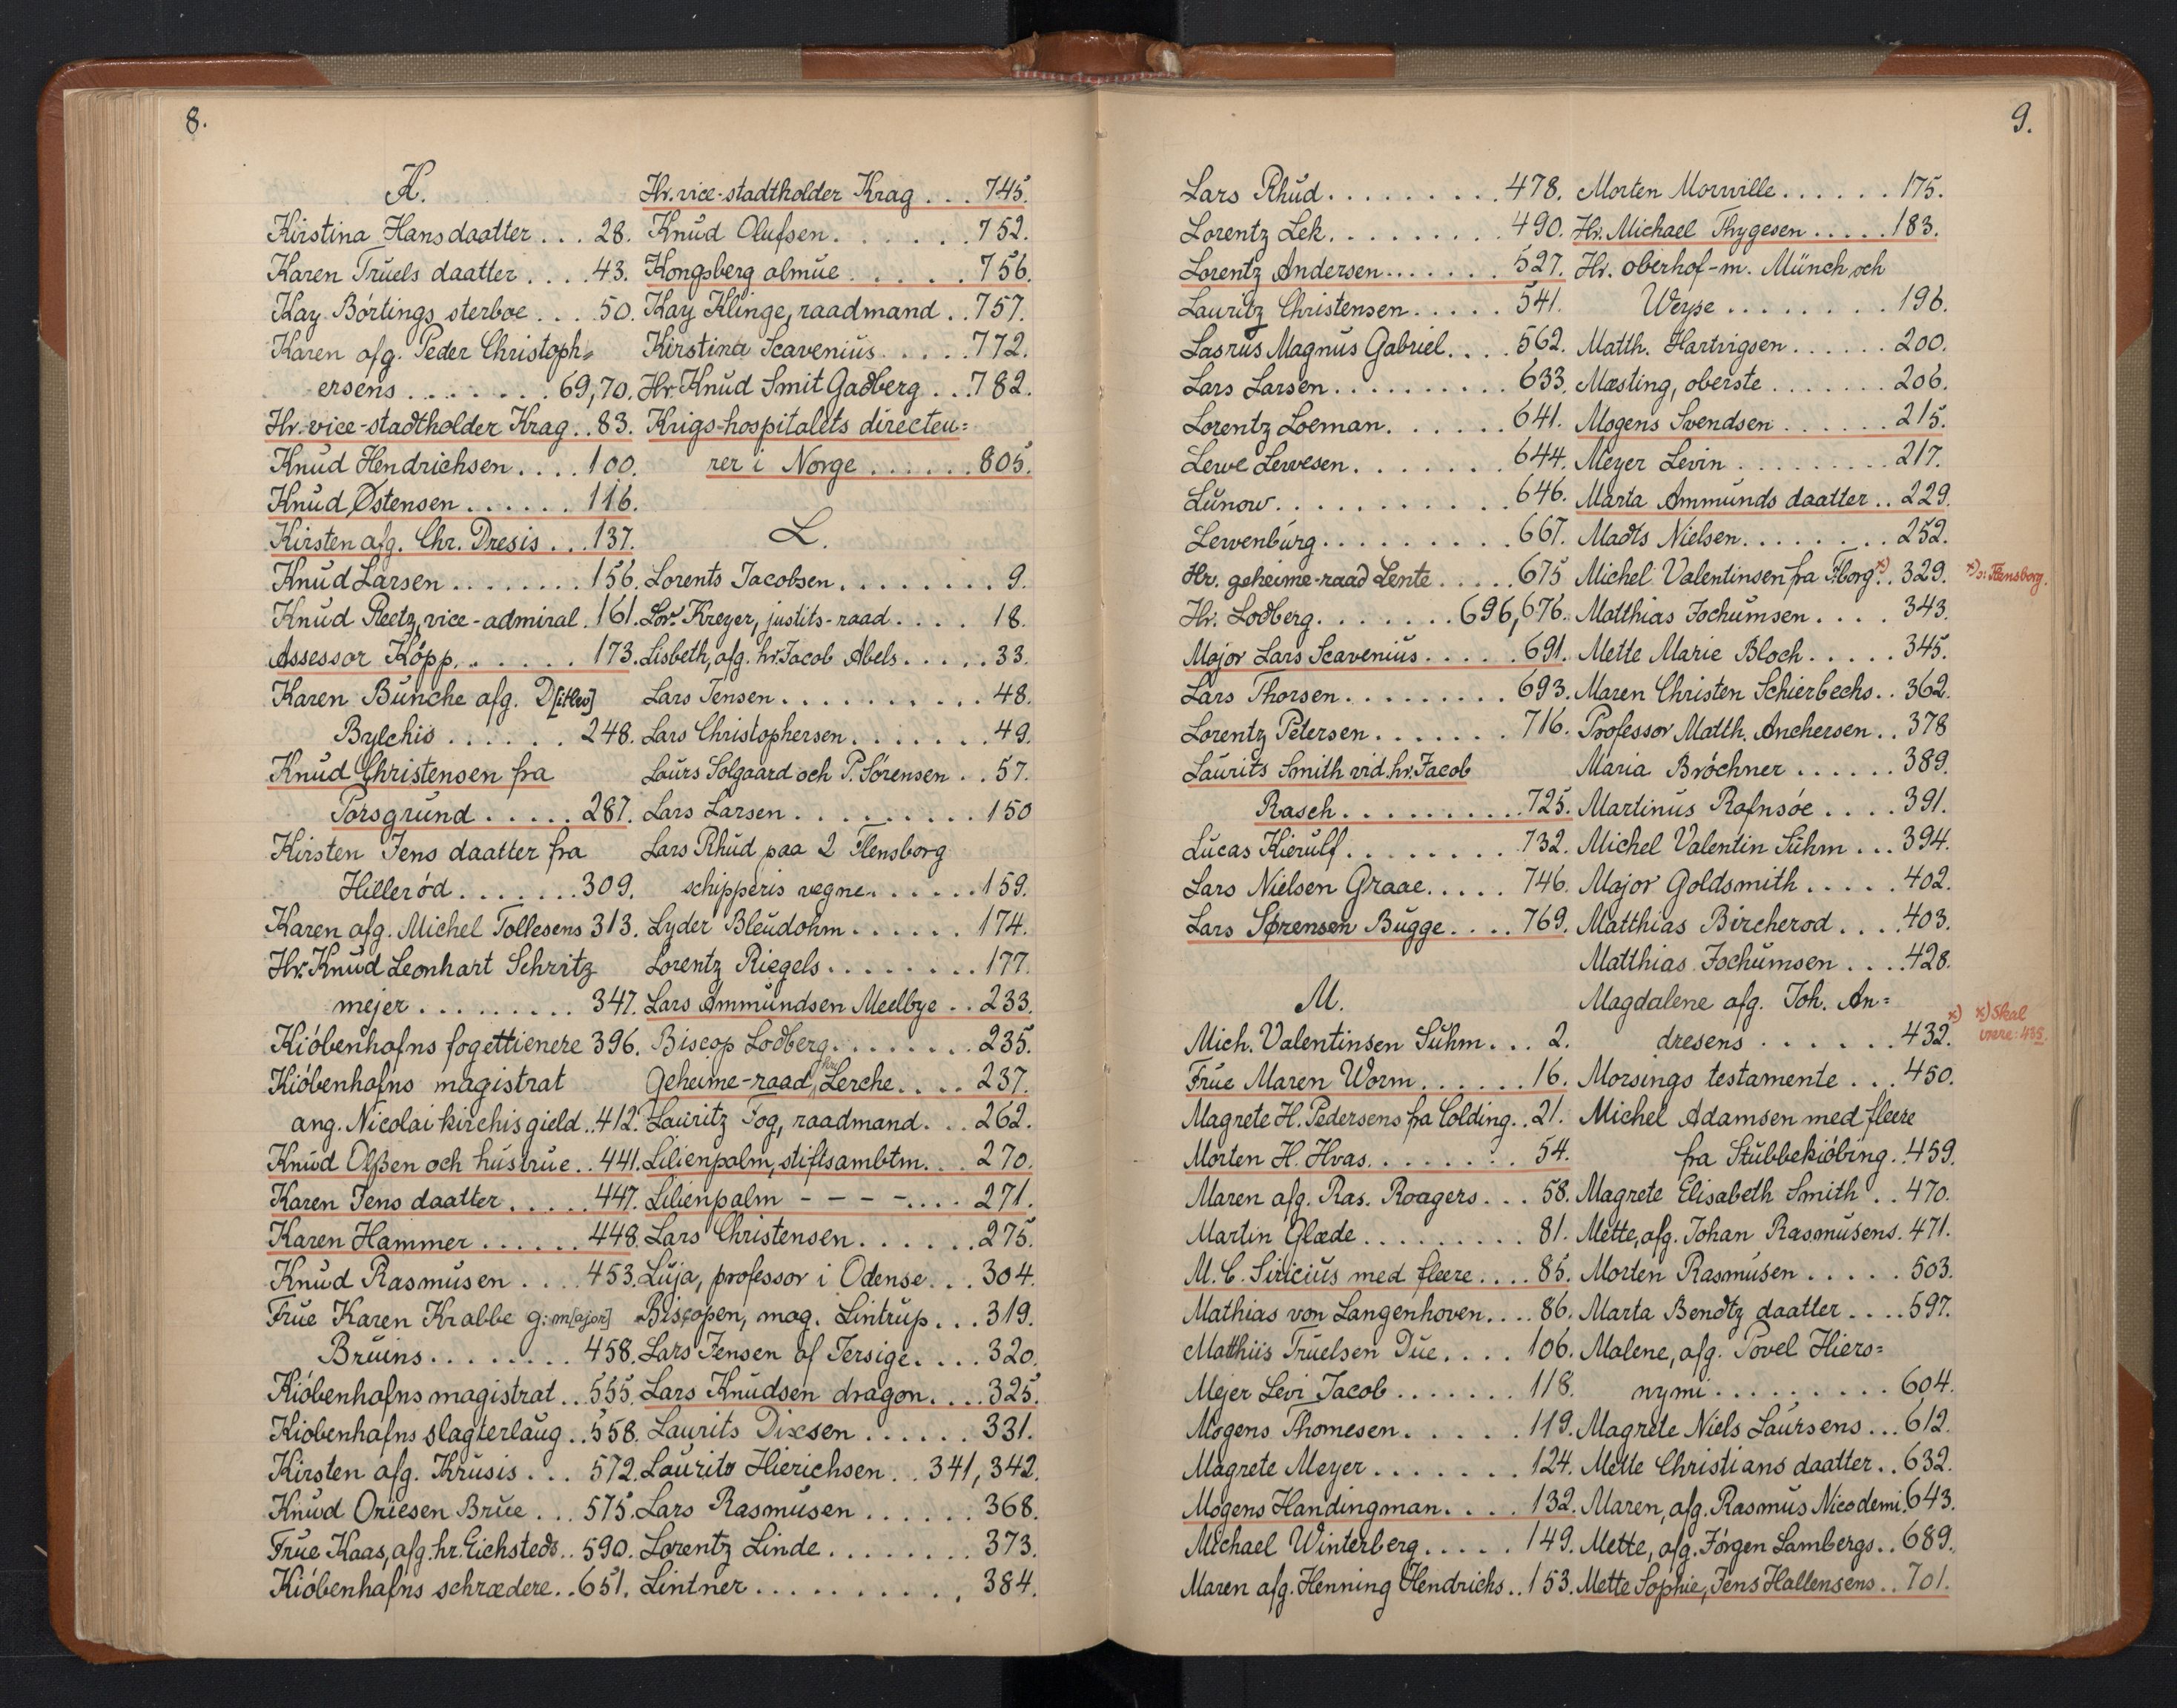 8.
K.
Kirstina Hansdaatter . . . 28.
Karen Truels daatter . . . . 43.
Kay Börtings sterboe . . . 50.
Karen afg. Peder Christoph=
ersens . . . . . . . . 69, 70.
Hr. vice-stadtholder Krag . . 83.
Knud Hendrichsen . . . . 100.
Knud Østensen . . . . . . 116.
Kirsten afg. Chr. Dresis . . . 137.
Knud Larsen . . . . . . . . 156.
Knud Reetz, vice-admiral . 161.
Assessor Köpp . . . . . . . 173.
Karen Bunche afg. D[itlevs]
Bylchis . . . . . . 248.
Knud Christensen fra
Porsgrund . . . . . 287.
Kirsten Jens daatter fra
Hilleröd . . . . . . . 309.
Karen afg. Michel Tollesens 313.
Hr. Knud Leonhart Schritz
mejer . . . . . . . . . 347.
Kiöbenhafns fogettienere 396.
Kiöbenhafns magistrat
ang. Nicolai kirchis gield . . 412.
Knud Olßen och hustrue . . 441.
Karen Jens daatter . . . . . 447.
Karen Hammer . . . . . . 448.
Knud Rasmusen . . . . 453.
Frue Karen Krabbe g: m[ajor]
Bruins . . . . . . . . 458.
Kiöbenhafns magistrat . . . 555.
Kiöbenhafns slagterlaug . . 558.
Kirsten afg. Krusis . . . 572.
Knud Oriesen Brue . . . 575.
Frue Kaas, afg. hr. Eichsteds . . 590.
Kiöbenhafns schrædere . . 651.
Hr. vice-stadtholder Krag . . . 745.
Knud Olufsen . . . . . . . 752.
Kongsberg almue . . . . . 756.
Kay Klinge, raadmand . . 757.
Kirstina Scavenius . . . . . 772.
Hr. Knud Smit Gadberg . . . 782.
Krigs-hospitalets directeu=
rer i Norge . . . . . . 805.
L.
Lorents Jacobsen . . . . . . . . 9.
Lor. Kreyer, justits-raad . . . . 18.
Lisbeth, afg. hr. Jacob Abels . . . . . 33.
Lars Jensen . . . . . . . . . . 48.
Lars Christophersen . . . . . . . 49.
Laurs Solgaard och P. Sörensen . . 57.
Lars Larsen . . . . . . . . . 150
Lars Rhud paa 2 Flensborg
schipperis vegne . . . . . . 159.
Lyder Bleudohm . . . . . . 174.
Lorentz Riegels . . . . . . . . 177.
Lars Ammundsen Meelbye . . 233.
Biscop Lodberg . . . . . . . 235.
Geheime-raad hr. Lerche . . . . 237.
Lauritz Fog, raadmand . . . 262.
Lilienpalm, stiftsambtm. . . 270.
Lilienpalm - - - - . . . . 271.
Lars Christensen . . . . . . 275.
Luja, professor i Odense . . . 304.
Biscopen, mag. Lintrup . . . 319.
Lars Jensen af Jersige . . . . 320.
Lars Knudsen dragon . . . . 325.
Laurits Dixsen . . . . . . 331.
Laurits Hierichsen . . 341, 342.
Lars Rasmusen . . . . . . 368.
Lorentz Linde . . . . . . . . 373.
Lintner . . . . . . . . . . . 384.
9.
Lars Rhud . . . . . . . . . 478.
Lorentz Lek . . . . . . . . . 490.
Lorentz Andersen . . . . . . . 527.
Lauritz Christensen . . . . . 541.
Lasrus Magnus Gabriel . . . . 562.
Lars Larsen . . . . . . . . . . 633.
Lorentz Loeman . . . . . . . 641.
Lewe Lewesen . . . . . . . . 644.
Lunow . . . . . . . . . . . . 646.
Lewenburg . . . . . . . . . . 667.
Hr. geheime-raad Lente . . . . . 675
Hr. Lodberg . . . . . . . . 696, 676.
Major Lars Scavenius . . . . . 691.
Lars Thorsen . . . . . . . . . 693.
Lorentz Petersen . . . . . . . 716.
Laurits Smith vid. hr. Jacob
Rasch . . . . . . . . . . 725.
Lucas Kierulf . . . . . . . . 732.
Lars Nielsen Graae . . . . . 746.
Lars Sørensen Bugge . . . . 769.
M.
Mich. Valentinsen Suhm . . . 2.
Frue Maren Worm . . . . . . 16.
Magrete H. Pedersens fra Colding . . 21.
Morten H. Hvas . . . . . . . . 54.
Maren afg. Ras. Roagers . . . 58.
Martin Glæde . . . . . . . . . 81.
M. C. Siricius med fleere . . . . 85.
Mathias von Langenhoven . . . . 86.
Matthiis Truelsen Due . . . . 106.
Mejer Levi Jacob . . . . . . . 118.
Mogens Thomesen . . . . . . 119.
Magrete Meyer . . . . . . . . 124.
Mogens Handingman . . . . 132.
Michael Winterberg . . . . . 149.
Maren afg. Henning Hendrichs . . 153.
Morten Morville . . . . . . 175.
Hr. Michael Thygesen . . . . . 183.
Hr. oberhof-m. Münch och
Weyse . . . . . . . . 196.
Matth. Hartvigsen . . . . . . 200.
Mæsting, oberste . . . . . . . 206.
Mogens Svendsen . . . . . . 215.
Meyer Levin . . . . . . . . . 217.
Marta Ammunds daatter . . 229.
Mads Nielsen . . . . . . . . 252.
Michel Valentinsen fra Fborg *) . . 329. *) ɔ: Flensborg.
Matthias Jochumsen . . . . 343.
Mette Marie Bloch . . . . . 345.
Maren Christen Schierbechs . . 362.
Professor Matth. Anchersen . . 378
Maria Bröchner . . . . . . 389.
Martinus Rafnsöe . . . . 391.
Michel Valentin Suhm . . . 394.
Major Goldsmith . . . . . 402.
Matthias Bircherod . . . . 403.
Matthias Jochumsen . . . . 428.
Magdalene afg. Joh. An=
dresens . . . . . . . 432. *) *) Skal
være: 435.
Morsings testamente . . . 450.
Michel Adamsen med fleere
fra Stubbekiöbing . . 459.
Magrete Elisabeth Smith . . 470.
Mette, afg. Johan Rasmusens . 471.
Morten Rasmusen . . . . . 503.
Marta Bendtz daatter . . . . 597.
Malene, afg. Povel Hiero=
nymi . . . . . . . . . 604.
Magrete Niels Laursens . . . 612.
Mette Christians daatter . . 632.
Maren, afg. Rasmus Nicodemi . 643.
Mette, afg. Jörgen Lambergs . . 689.
Mette Sophie, Jens Hallensens . . 701.